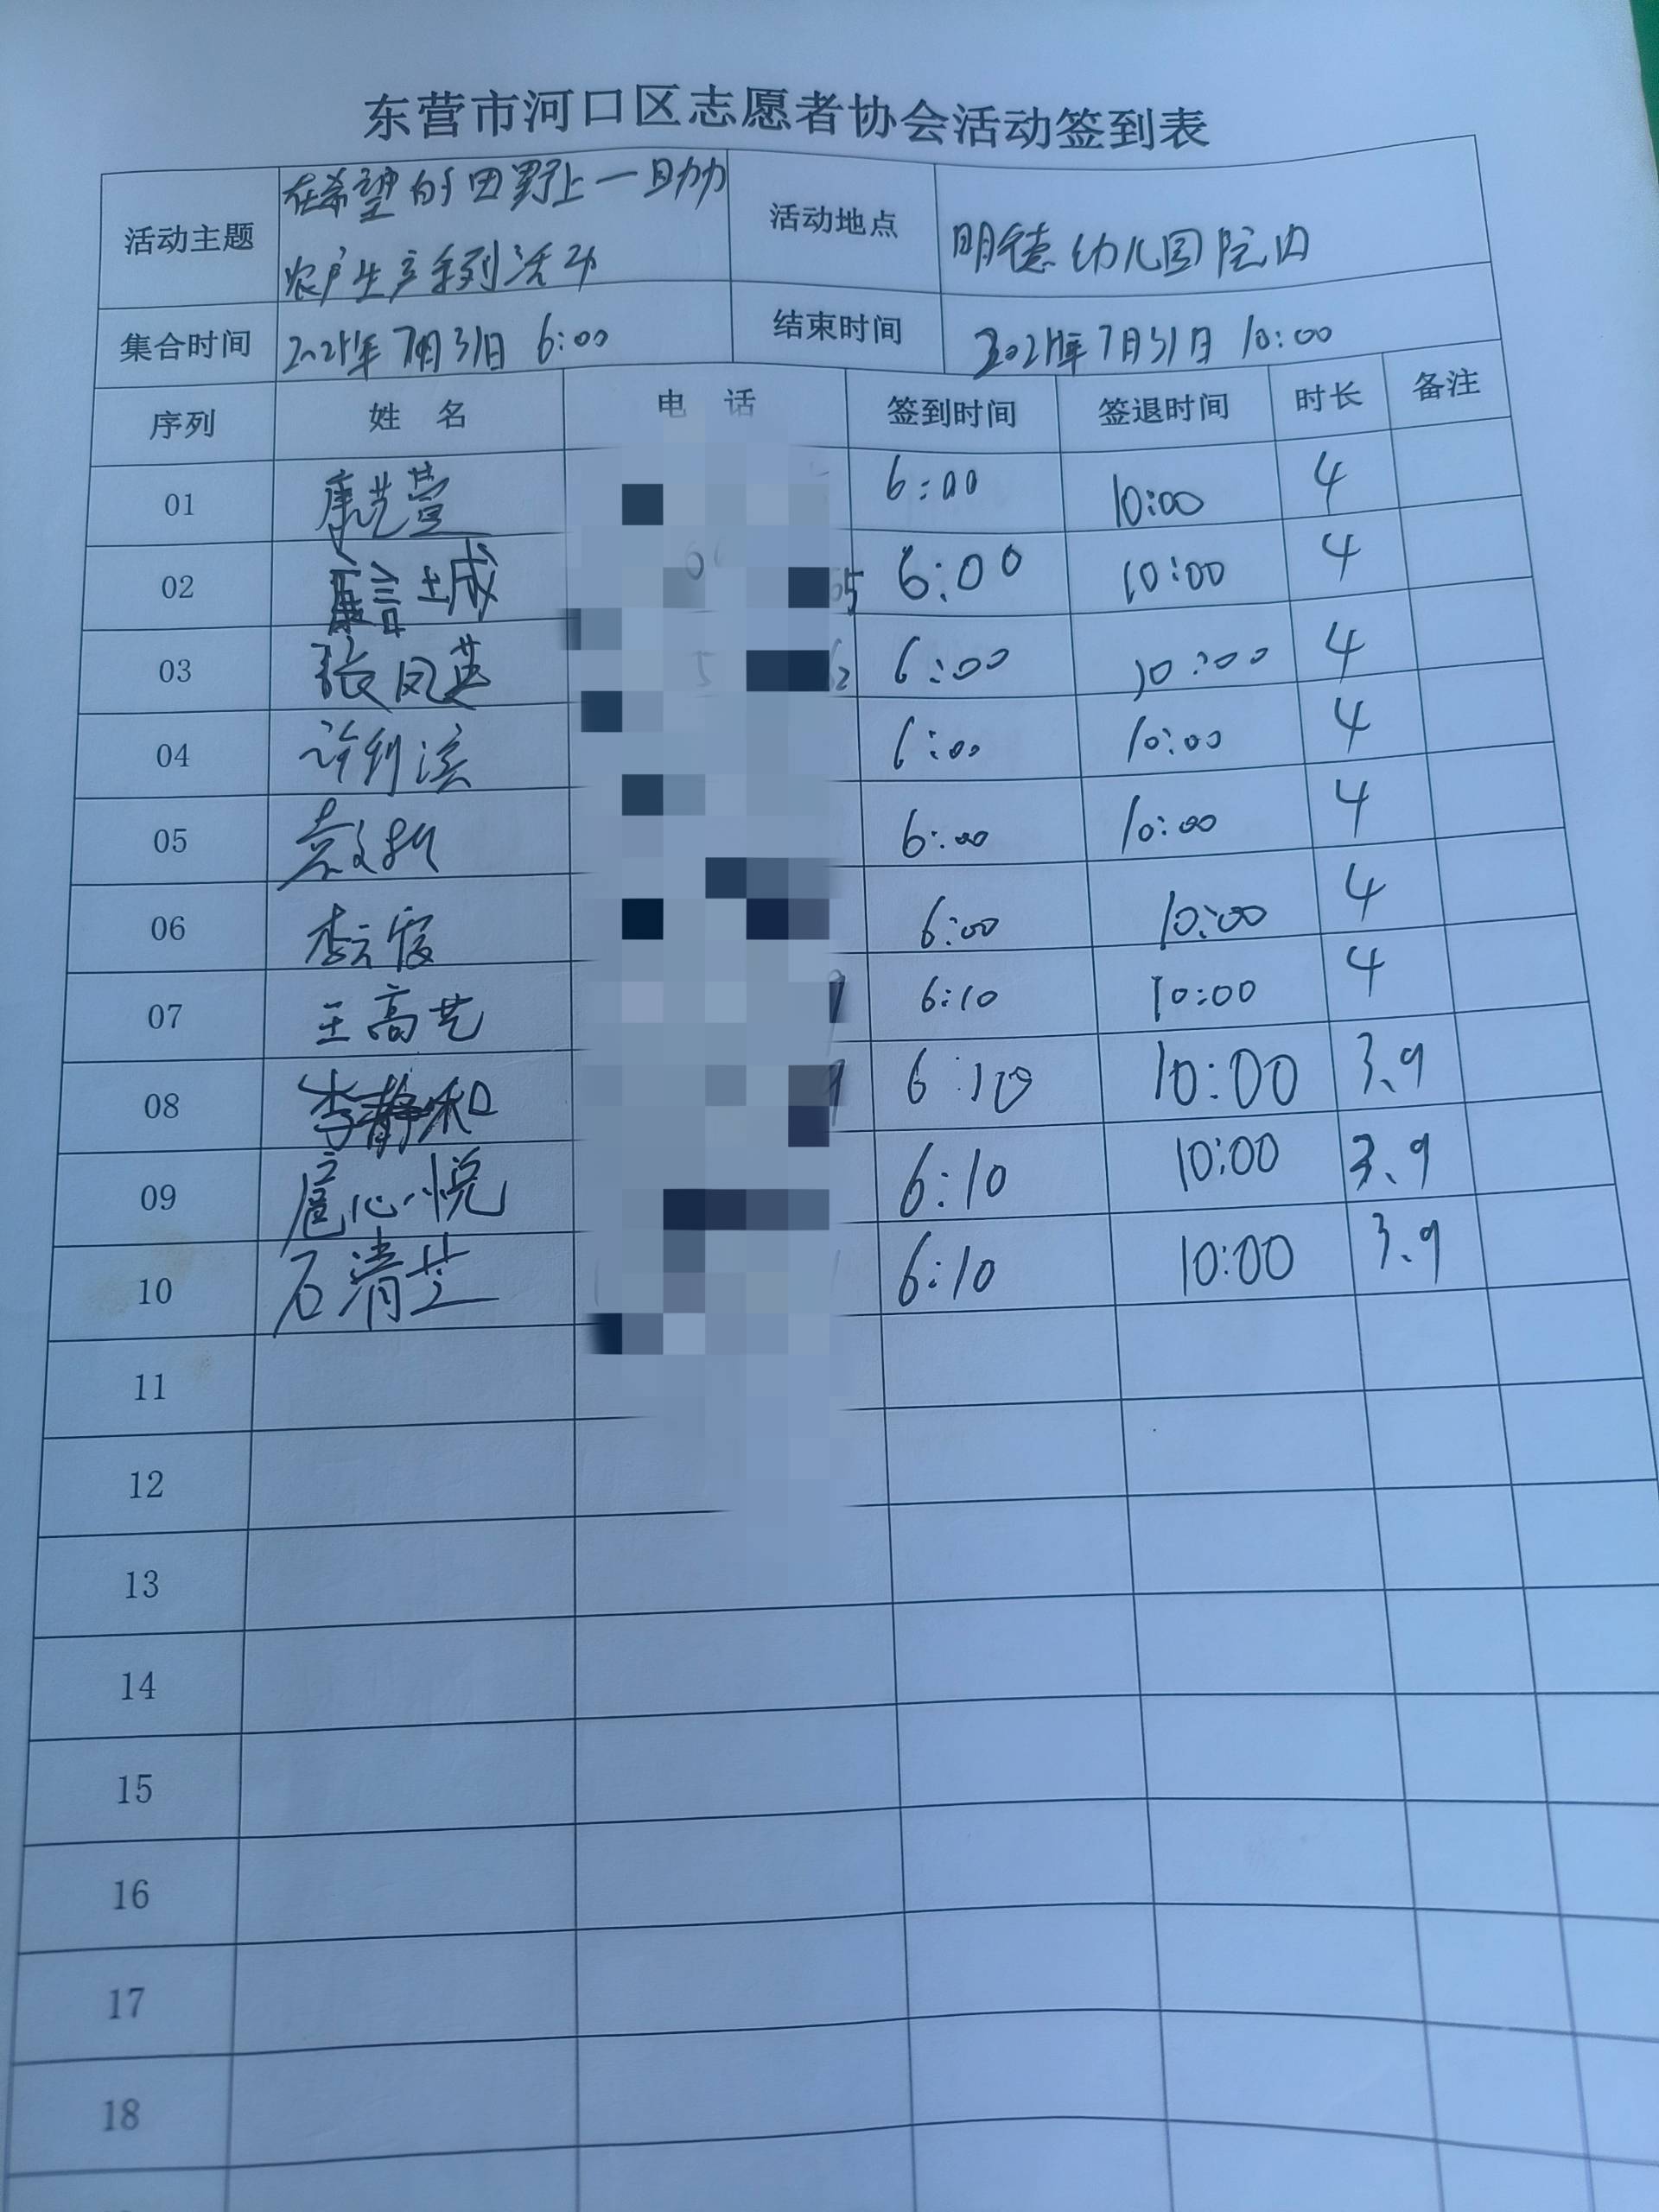 东营市河口区志愿者协会活动签到表
活动主题 在希望的田野上一助力
农户生产系列活动
活动地点 明德幼儿园院内
集合时间 7月31日 6:00 结束时间 7月31日 10:00
序列 姓名 电话 签到时间 签退时间 时长 备注
01 6:00 10:00 4
02 6:00 10:00 4
03 张凤英 6:00 10:00 4
04 6:00 10:00 4
05 6:00 10:00 4
06 6:00 10:00 4
07 王高艺 6:10 10:00 4
08 李静和 6:10 10:00 3.9
09 扈心悦 6:10 10:00 3.9
10 石清芝 6:10 10:00 3.9
11
12
13
14
15
16
17
18